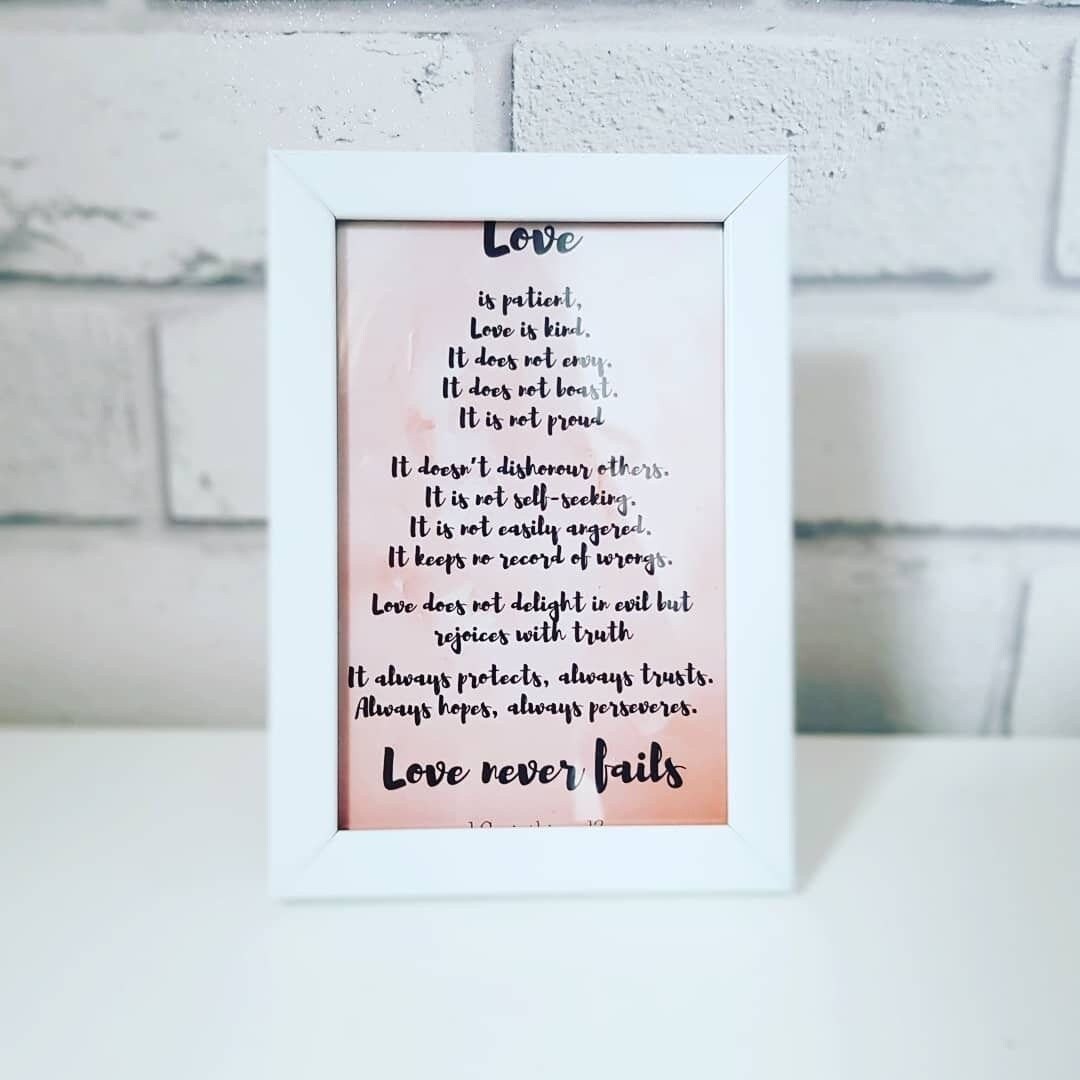 Love
is patient,
Love is kind.
It does not envy.
It does not boast.
It is not proud
It doesn't dishonour others.
It is not self-seeking.
It is not easily angered.
It keeps no record of wrongs.
Love does not delight in evil but
rejoices with truth
It always protects, always trusts.
Always hopes, always perseveres.
Love never fails